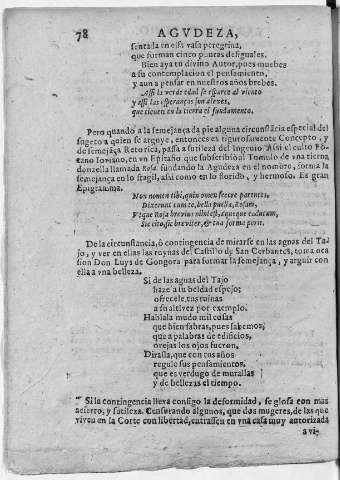 78 AGVDEZA,
sentada en essa vasa peregrina,
que forman cinco puntas desiguales.
Bien aya tu divino Autor, pues muebes
a su contemplacion el pensamiento,
y aun a pensar en nuestros años brebes.
Assi la verde edad se esparce al viento
y assi las esperanças son alebes,
que tienen en la tierra el fundamento.
Pero quando a la semejança da pie alguna circunstãcia especial del
sugeto a quien se arguye, entonces es rigurosamente Concepto, y
de semejãça Retorica, passa a sutileza del Ingenio. Assi el culto Põ-
tano Ioviano, en vn Epitafio que subscribiò al Tumulo de vna tierna
donzella llamada Rosa fundando la Agudeza en el nombre, forma la
semejança en lo fragil, assi como en lo florido, y hermoso. Es gran
Epigramma.
Non nomen tibi, quin omen fecere parentes,
Dixerunt cum te, bella puella, Rosam,
Vtque Rosa brevius nihil est,
Sic cito, sic breviter, & tua forma perit.
De la circunstancia, ò contingencia de mirarse en las aguas del Ta-
jo, y ver en ellas las ruynas del Castillo de San Cerbantes, toma oca
sion Don Luys de Gongora para formar la semejança, y arguir con
ella a vna belleza.
Si de las aguas del Tajo
haze a su beldad espejo;
ofrecele tus ruinas
a su altivez por exemplo.
Hablala mudo mil cosas
que bien sabras, pues sabemos,
que a palabras de edificios,
orejas los ojos fueron.
Dirasla, que con tus años
regule sus pensamientos,
que es verdugo de murallas
y de bellezas el tiempo.
Si la contingencia lleva consigo la deformidad, se glosa con mas
acierto, y sutileza. Censurando algunos, que dos mugeres, de las que
viven en la Corte con libertad, entrassen en vna casa muy autorizada
a vi-